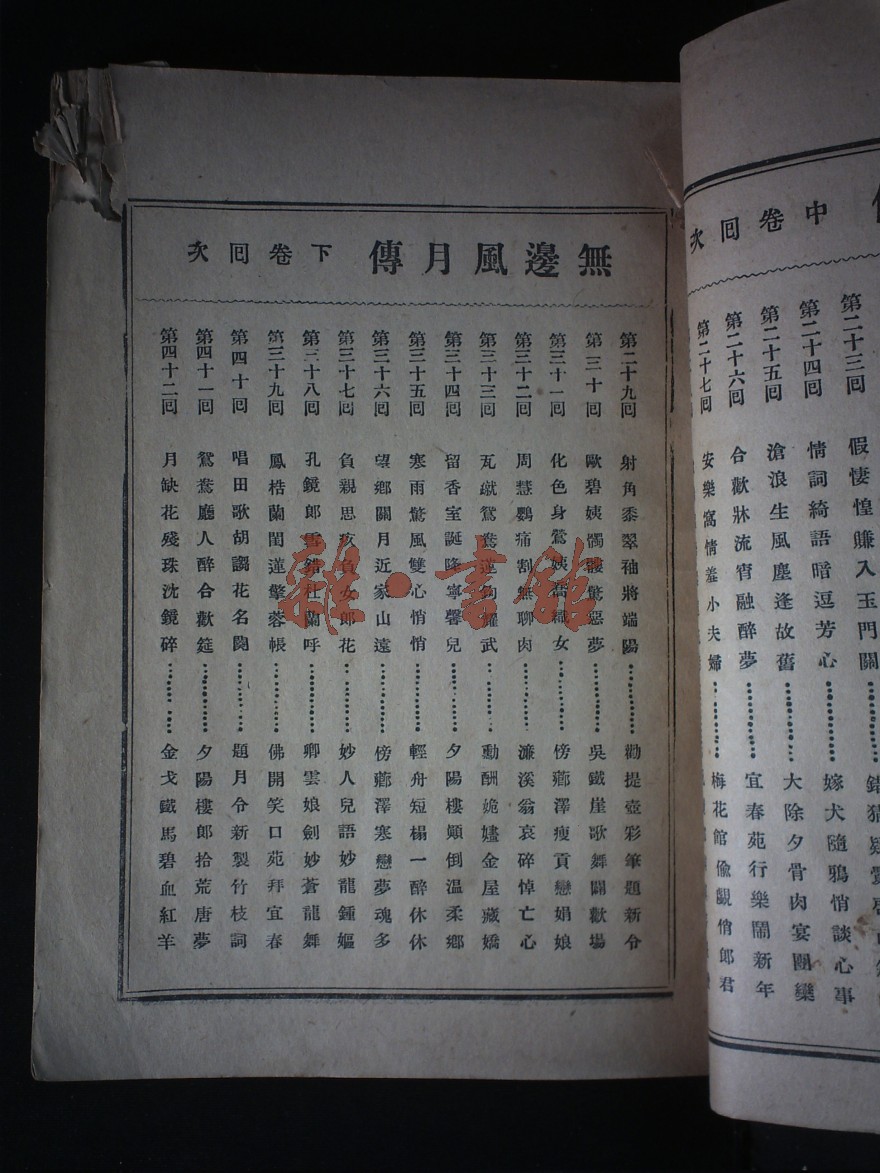 無邊風月傳　下卷囘次
第二十九囘　射角黍翠袖將端陽⋯⋯勸提壺彩筆題新令
第三十囘　歐碧姨髑髏驚惡夢⋯⋯吳鐵崖歌舞鬭歡場
第三十一囘　化色身鶯姨織女⋯⋯傍薌澤瘦貢戀娟娘
第三十二囘　周慧鸚痛割無聊肉⋯⋯濂溪翁哀碎悼亡心
第三十三囘　瓦嶽鴛鴦逆武⋯⋯勳酬姽嫿金屋藏嬌
第三十四囘　留香室誕降寧馨兒⋯⋯夕陽樓顚倒温柔鄉
第三十五囘　寒雨驚風雙心悄悄⋯⋯輕舟短榻一醉休休
第三十六囘　望鄉關月近家山遠⋯⋯傍薌澤寒戀夢魂多
第三十七囘　負親思疚負女郎花⋯⋯妙人兒語妙龍鍾嫗
第三十八囘　孔鏡郎雪錯杜蘭呼⋯⋯卿雲娘劍妙蒼龍舞
第三十九囘　鳳梏蘭閨蓮擎蓉帳⋯⋯佛開笑口苑拜宜春
第四十囘　唱田歌胡謅花名闋⋯⋯題月令新製竹枝詞
第四十一囘　鴛鴦廳人醉合歡筵⋯⋯夕陽樓郎拾荒唐夢
第四十二囘　月缺花殘珠沈鏡碎⋯⋯金戈鐵馬碧血紅羊
中卷囘次
第二十三囘　假悽惶賺入玉門關
第二十四囘　情詞綺語暗逗芳心⋯⋯嫁犬隨鴉悄談心事
第二十五囘　滄浪生風塵逢故舊⋯⋯大除夕骨肉宴團欒
第二十六囘　合歡牀流宵融醉夢⋯⋯宜春苑行樂鬧新年
第二十七囘　安樂窩情羞小夫婦⋯⋯梅花館偸覷俏郎君
雜·書館